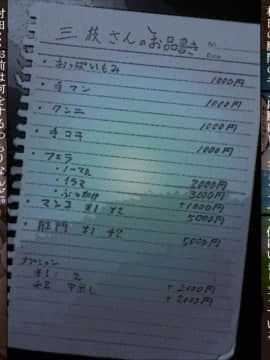 三枝さんのお品書き
・おっぱいもみ 1000円
・手マン 1000円
・クンニ 1000円
・手コキ 1000円
・フェラ
・ノーマル 2000円
・イラマ 3000円
・ぶっかけ +1000円
・マンコ *1 *2 5000円
・肛門 *1 *2 5000円
オプション
*1: 生 +2000円
*2 中出し +2000円
お前は何をするつもりなんだ。